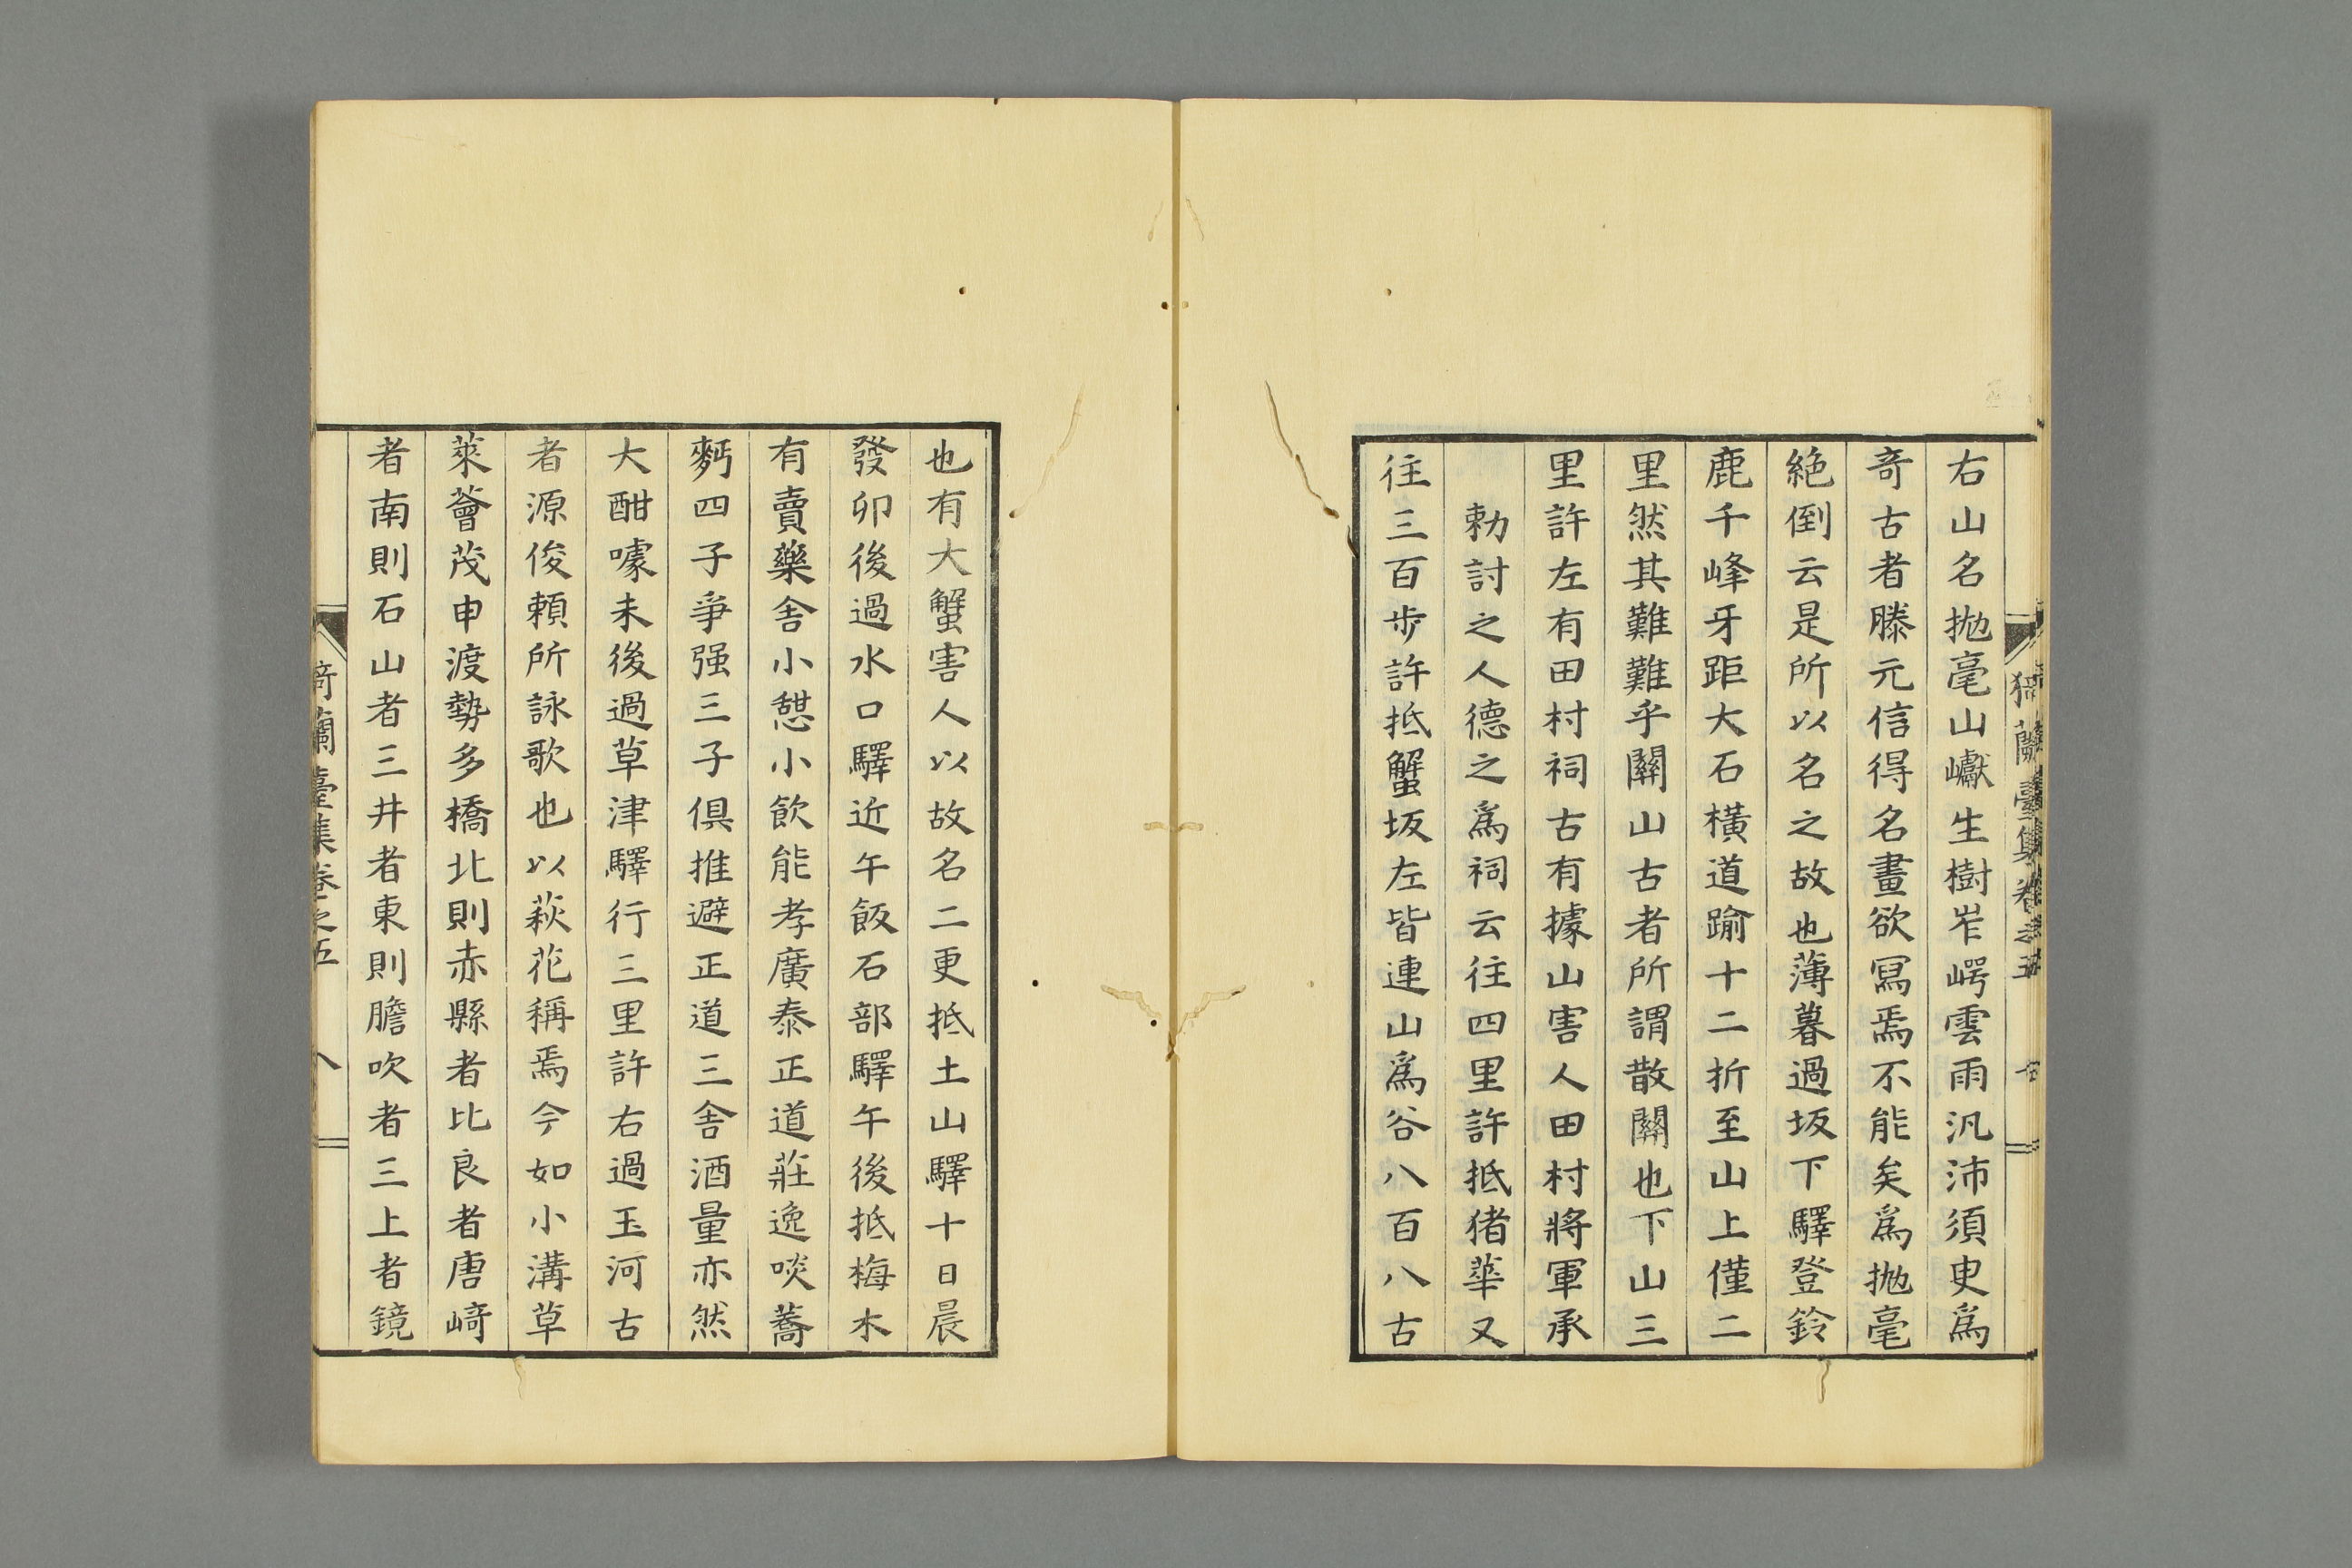 猗蘭臺集卷之五 七
右山名抛毫山巘生樹岝崿雲雨汎沛須臾爲
奇古者滕元信得名畫欲寫焉不能矣爲抛毫
絶倒云是所以名之故也薄暮過坂下驛登鈴
鹿千峰牙距大石橫道踰十二折至山上僅二
里然其難難乎關山古者所謂散關也下山三
里許左有田村祠古有據山害人田村將軍承
勅討之人德之爲祠云往四里許抵猪華又
往三百步許抵蟹坂左皆連山爲谷八百八古
也有大蟹害人以故名二更抵土山驛十日晨
發卯後過水口驛近午飯石部驛午後抵梅木
有賣藥舍小憇小飲能孝廣泰正道莊逸啖蕎
麪四子爭强三子俱推避正道三舍酒量亦然
大酣噱未後過草津驛行三里許右過玉河古
者源俊賴所詠歌也以萩花稱焉今如小溝草
萊薈茂申渡勢多橋北則赤縣者比良者唐崎
者南則石山者三井者東則膽吹者三上者鏡
猗蘭臺集卷之五 八